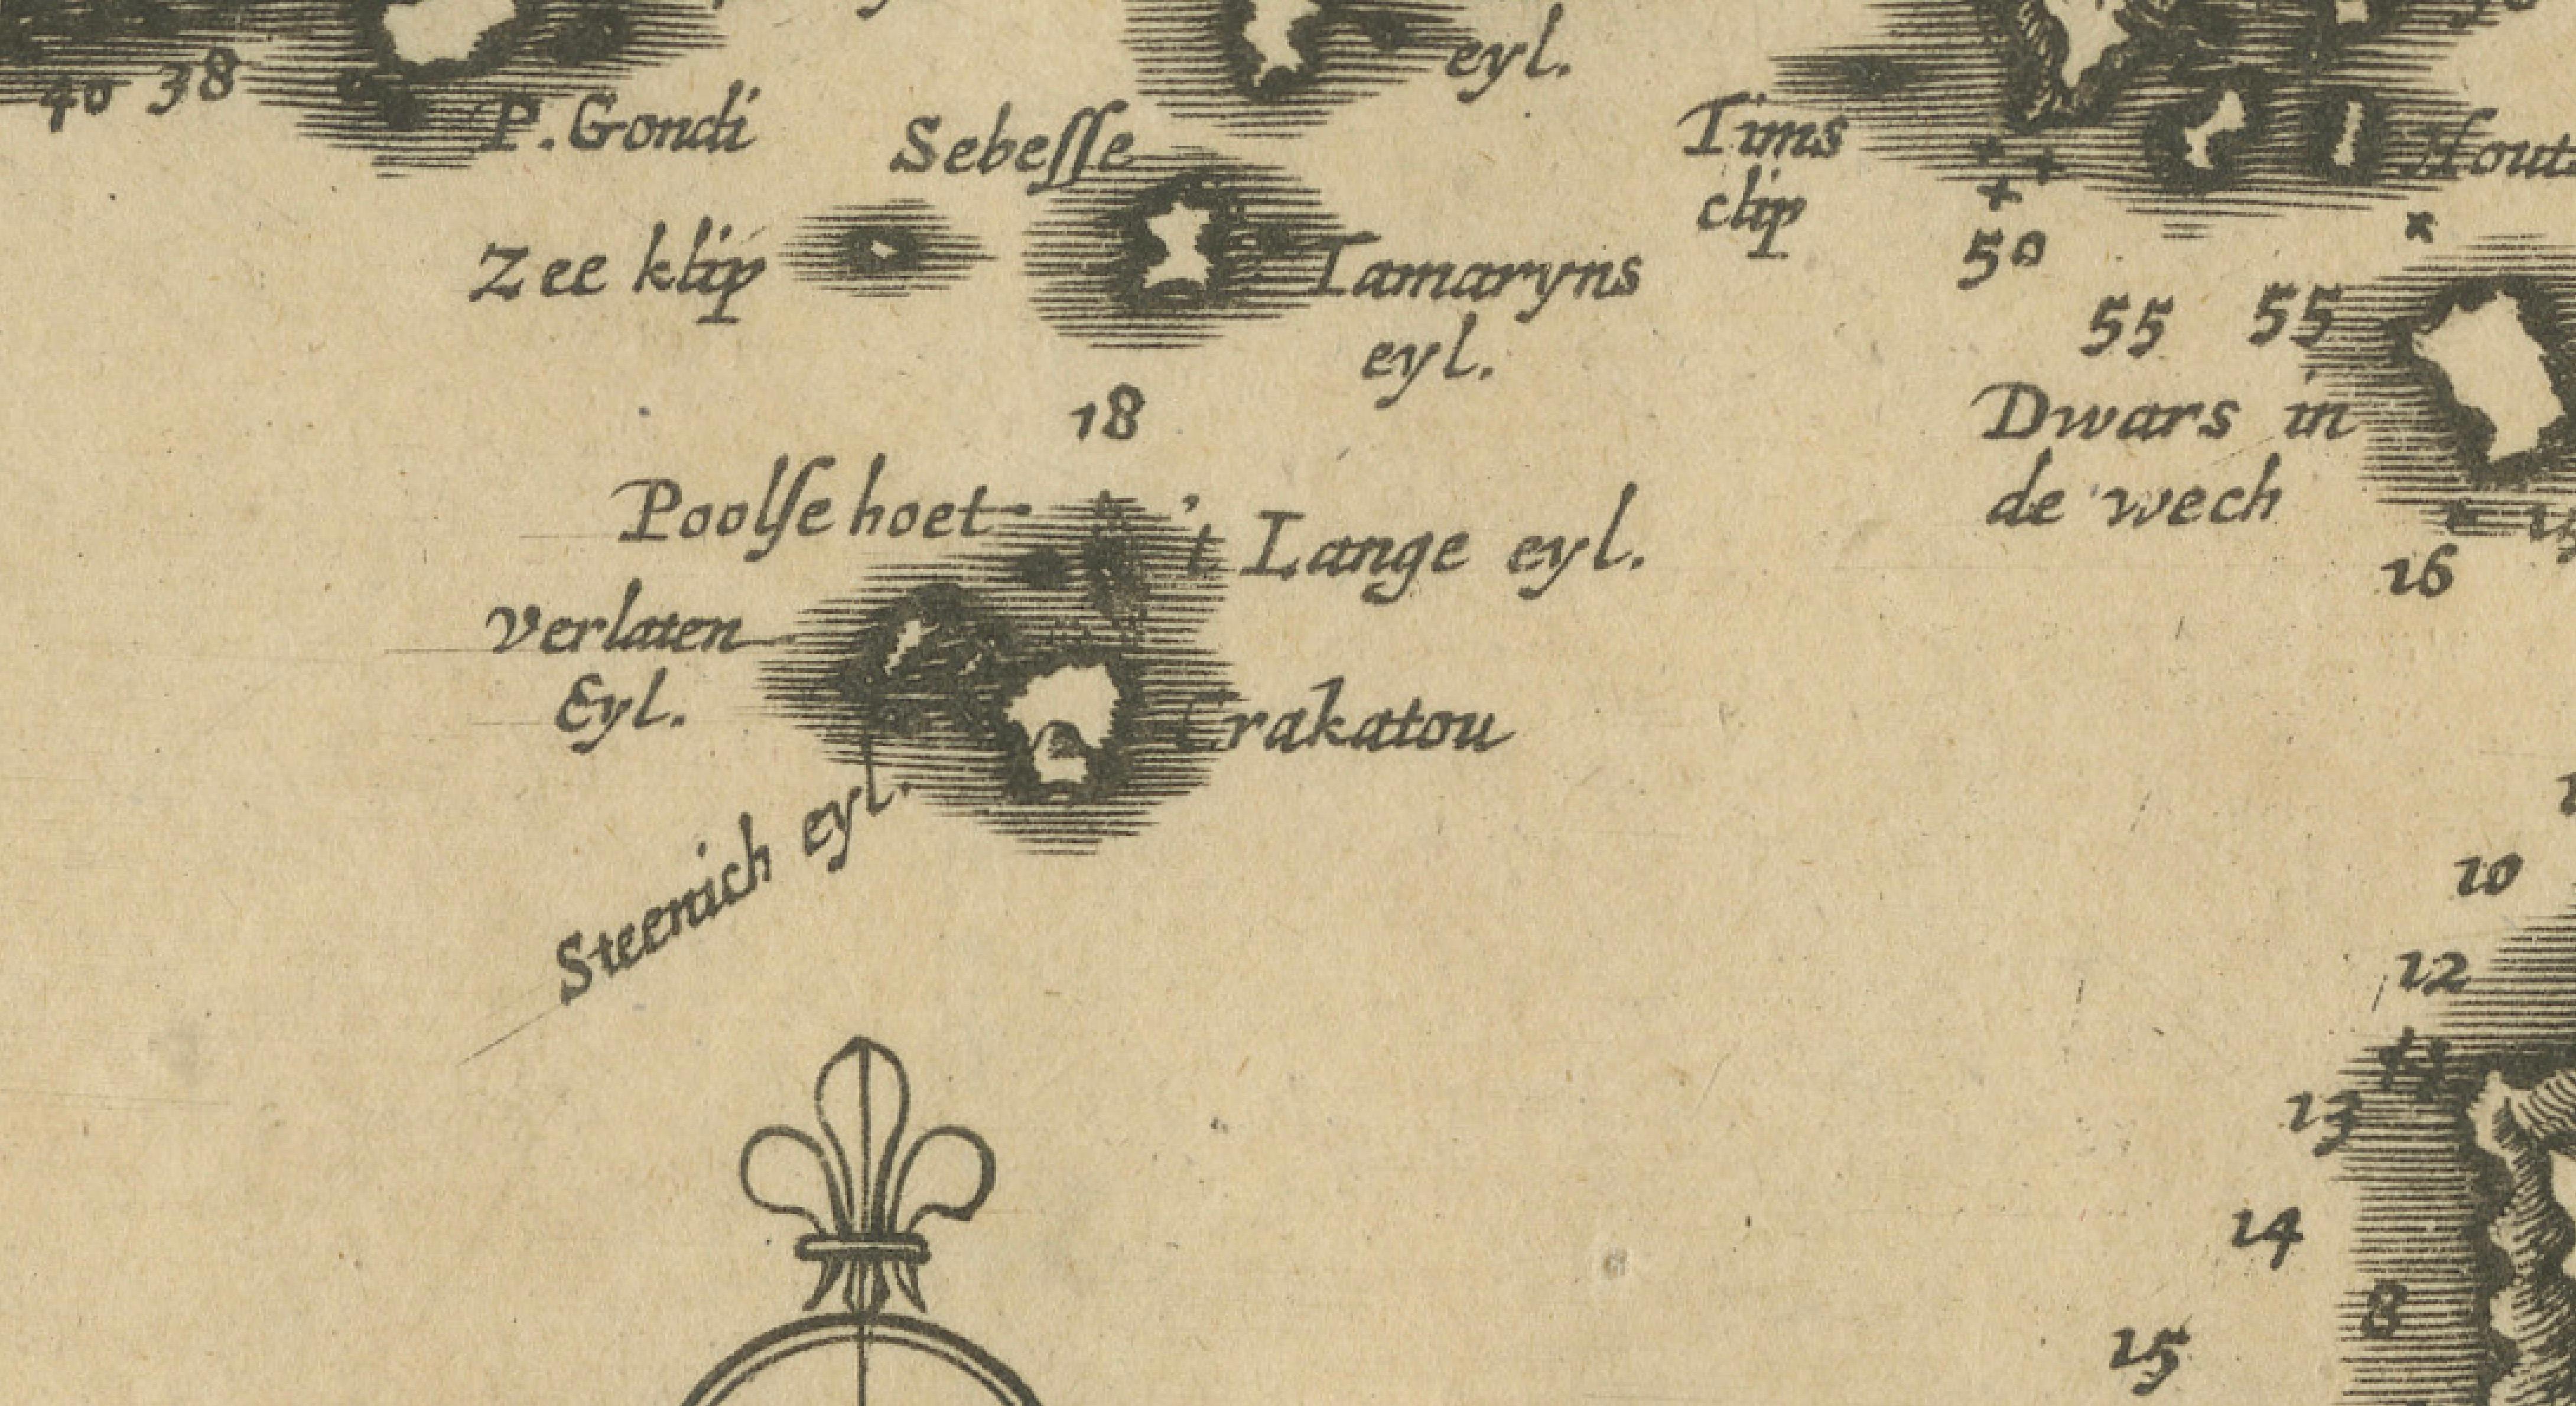 40 38
P. Gondi
eyl.
Sebeſſe
Zee klip
Tamaryns
eyl.
Tims
clip
50
55 55
Dwars in
de wech
16
18
Poolſe hoet
't Lange eyl.
Verlaten
Eyl.
Crakatou
Steenich eyl.
10
12
13
14
8
15